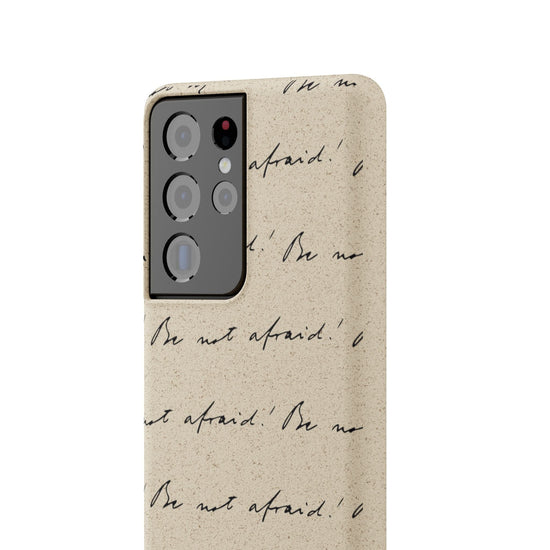 Be no
afraid!
! Be no
Be not afraid!
not afraid! Be no
Be not afraid!